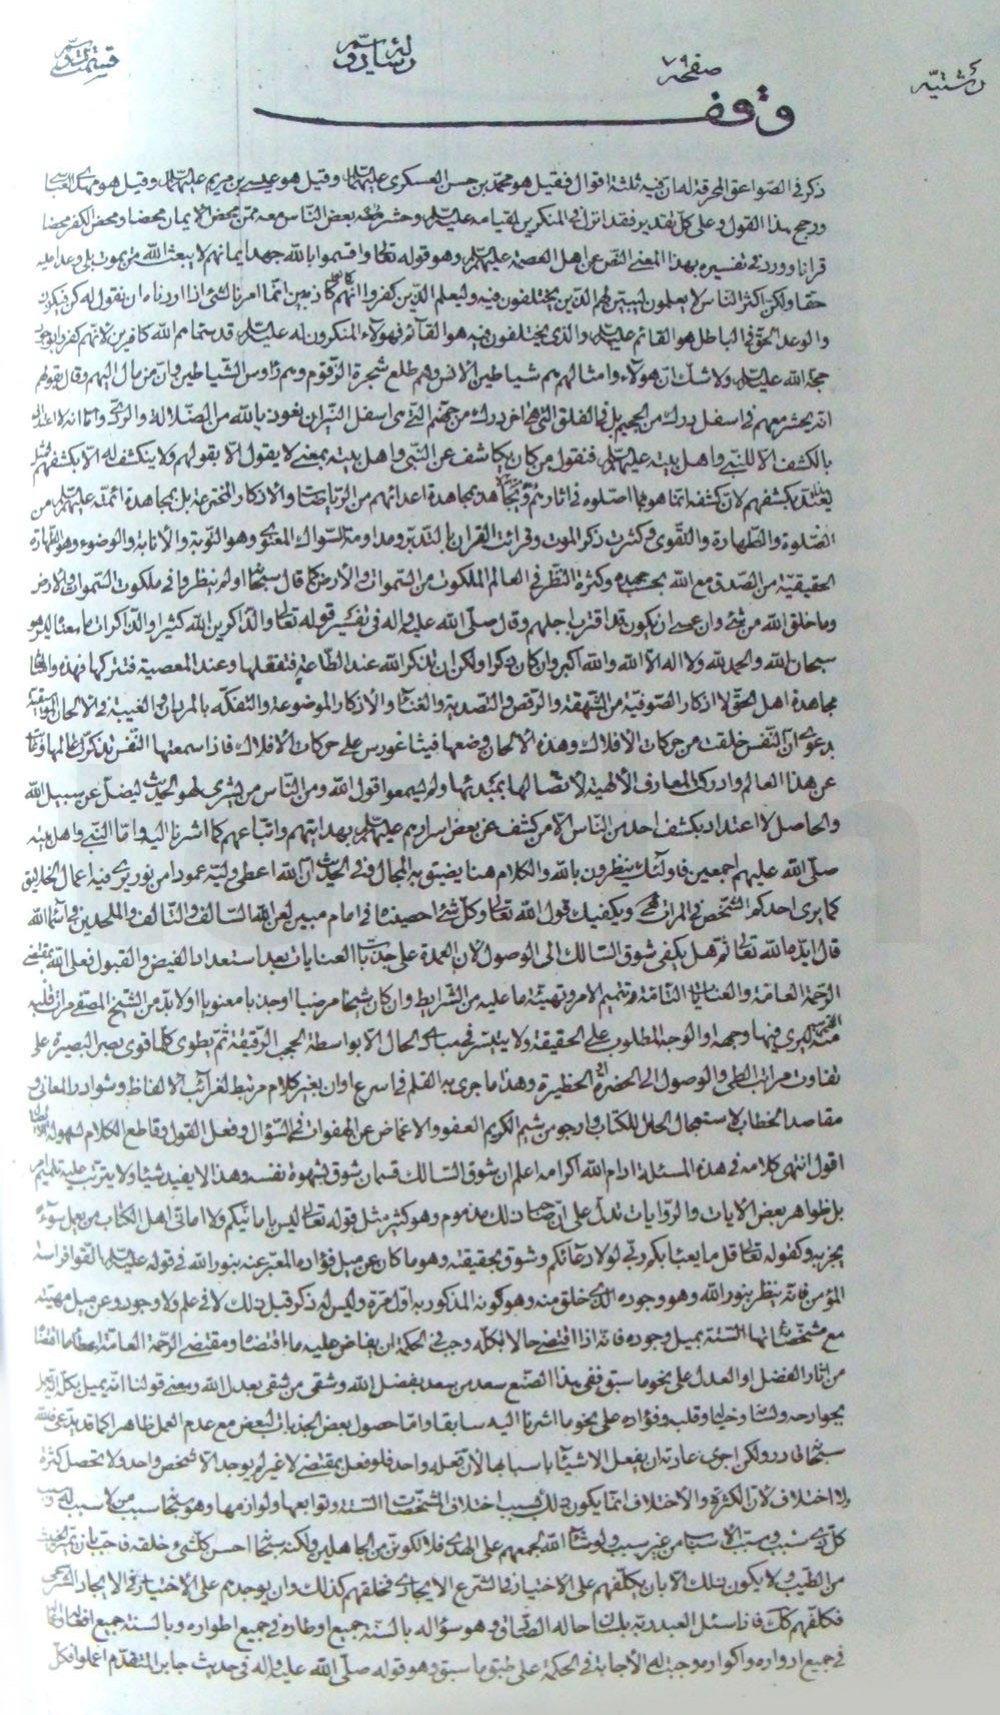 رشتیه صفحه ٧٩ رساله قسمت
وقف
ذكر فى الصواعق المحرقة له ان فيه ثلثة اقوال فقيل هو محمد بن حسن العسكرى عليهما وقيل هو عيسى بن مريم عليهما وقيل هو مهدى
ورجح هذا القول وعلى كل تقدير فقد انزل فى المنكرين لقيامه عليه السلم وحشر معه بعض الناس معه ممن محض الايمان محضا ومحض الكفر محضا
قرانا وورد فى تفسيره بهذا المعنى النص عن اهل العصمة عليهم السلم وهو قوله تعالى واقسموا بالله جهد ايمانهم لا يبعث الله من يموت بلى وعدا عليه
حقا ولكن اكثر الناس لا يعلمون ليبين لهم الذين يختلفون فيه وليعلم الذين كفروا انهم كانوا كاذبين انما امرنا لشئ اذا اردناه ان نقول له كن فيكون
والوعد الحق فى الباطل هو القائم عليه السلم والذى يختلفون فيه هو القائم فهؤلاء المنكرون له عليه السلم قد سماهم الله كافرين لانهم كفروا
حجة الله عليه السلم ولا شك ان هؤلاء وامثالهم هم شياطين الانس وهم طلع شجرة الزقوم وهم رؤوس الشياطين وان من مال اليهم وقال بقولهم
انه يحشر معهم فى اسفل درك من الجحيم بل فى الفلق التى هى اخر درك من جهنم التى هى اسفل النيران نعوذ بالله من الضلالة والردى واما انه لا اعتداد
بالكشف الا للنبى واهل بيته عليهم السلم فنقول من كان يكاشف عن النبى واهل بيته بمعنى لا يقول الا بقولهم ولا ينكشف له الا بكشفهم
يعتد بكشفهم لان كشفه انما هو بما اصلوه فى اثارهم هو بمجاهدة اعدائهم من الرياضات والاذكار المخترعة بل بمجاهدة ائمته عليهم السلم من
الصلوة والطهارة والتقوى وكثرت ذكر الموت وقرائت القران بالتدبر ومداومة السواك المعنوى وهو التوبة والانابة والوضوء وهو الطهارة
الحقيقية من الصدق مع الله بحسب جهده وكثرة النظر فى العالم الملكوت من السموات والارض كما قال سبحانه اولم ينظروا فى ملكوت السموات والارض
وما خلق الله من شئ وان عسى ان يكون قد اقترب اجلهم وقال صلى الله عليه واله فى تفسير قوله تعالى والذاكرين الله كثيرا والذاكرات ما معناه ليس هو
سبحان الله والحمد لله ولا اله الا الله والله اكبر وان كان ذكرا ولكن ان تذكر الله عند الطاعة فتفعلها وعند المعصية فتتركها فهذه وامثالها
مجاهدة اهل الحق لا اذكار الصوفية من الشهقة والرقص والتصدية والغناء والاذكار الموضوعة والتفكه بالمردان والغيبة فى الالحان الموسيقية
بدعوى ان النفس خلقت من حركات الافلاك وهذه الالحان وضعها فيثاغورس على حركات الافلاك فاذا سمعتها النفس تذكرت عالمها
عن هذا العالم وادركت المعارف الالهية لاتصالها بمبدئها ولم يسمعوا قول الله ومن الناس من يشترى لهو الحديث ليضل عن سبيل الله
والحاصل لا اعتداد بكشف احد من الناس الا من كشف عن بعض اسرارهم عليهم السلم بهدايتهم واتباعهم كما اشرنا اليه واما النبى واهل بيته
صلى الله عليهم اجمعين فاولئك ينظرون بالله والكلام هنا يضيق به المجال وفى الحديث ان الله اعطى وليه عمودا من نور يرى فيه اعمال الخلايق
كما يرى احدكم الشخص فى المرات ويكفيك قول الله تعالى وكل شئ احصيناه فى امام مبين لعن الله السالف والتالف والملحدين فى اسماء الله
قال ايده الله تعالى ثم هل يكفى شوق السالك الى الوصول لان العمدة على جذبات العنايات بعد استعداد الفيض والقبول فعلى الله بمقتضى
الرحمة العامة والعنايات التامة تتميم الامر وتهيئة ما عليه من الشرايط وان كان شيخا مرضيا او جذبا معنويا او لابد من الشيخ المصفى مرات قلبه
ليرى فيها وجهه او الوجه المطلوب على الحقيقة ولا يتيسر فى مبادى الحال الا بواسطة الحجب الرقيقة ثم يطوى كلما قوى بصر البصيرة على
تفاوت مراتب الطى والوصول الى الحضرة الحظيرة وهذا ما جرى به القلم فى اسرع اوان بغير كلام مرتبط لغرائب الالفاظ وشوارد المعانى
مقاصد الخطاب لاستعجال الحامل للكتاب وارجو من شيم الكريم العفو والاغماض عن الهفوات فى السؤال وفعل القول وقاطع الكلام
اقول انتهى كلامه فى هذه المسئلة ادام الله اكرامه اعلم ان شوق السالك قسمان شوق بشهوة نفسه وهذا لا يفيد شيئا ولا يترتب عليه
بل ظواهر بعض الايات والروايات تدل على ان صاحب ذلك مذموم وهو كثير مثل قوله تعالى ليس بامانيكم ولا امانى اهل الكتاب من يعمل سوءا
يجز به وكقوله تعالى قل ما يعبا بكم ربى لولا دعائكم وشوق بحقيقته وهو ما كان عن ميل فؤاده المعبر عنه بنور الله فى قوله عليه السلم اتقوا فراسة
المؤمن فانه ينظر بنور الله وهو وجوده الذى خلق منه وهو كونه المذكور به اول مرة وليس له ذكر قبل ذلك لا فى علم ولا وجود وعن ميل مهيته
مع مشخصاتها الستة بميل وجوده فانه اذا اقتضى حالا بكله وجب فى الحكمة ان يفاض عليه ما اقتضاه ومقتضى الرحمة العامة
من اثار الفضل او العدل على نحو ما سبق ففى هذا الصنع سعد من سعد بفضل الله وشقى من شقى بعدل الله ومعنى قولنا انه يميل بكله
بجوارحه وخياله وقلبه وفؤاده على نحو ما اشرنا اليه سابقا واما حصول بعض الجذبات لبعض مع عدم العمل ظاهرا كما قد يدعى فالله
سبحانه قادر ولكن اجرى عادته ان يفعل الاشياء باسبابها لان فعله واحد فلو فعل بمقتضى لا غير لم يوجد الا شخص واحد ولا تحصل كثرة
ولا اختلاف لان الكثرة والاختلاف انما يكون ذلك بسبب اختلاف المشخصات الستة وتوابعها ولوازمها وهو سبحانه سبب من لا سبب له وسبب
كل ذى سبب ومسبب الاسباب من غير سبب ولو شاء الله لجمعهم على الهدى فلا تكونن من الجاهلين ولكنه سبحانه احسن كل شئ خلقه فاحب بان يميز الخبيث
من الطيب ولا يكون ذلك الا بان يكلفهم على الاختيار فى الشرع الايجادى فخلقهم كذلك وان يوجدهم على الاختيار فى الايجاد الشرعى
فكلفهم كذلك فاذا سئل العبد ربه بلسان حاله الصادق وهو سؤاله بالسنة جميع اوطاره فى جميع اطواره وبالسنة جميع افعاله
فى جميع ادواره واكواره موجبة له الاجابة فى الحكمة على طبق ما سبق وهو قوله صلى الله عليه واله فى حديث جابر المتقدم اعملوا فكل